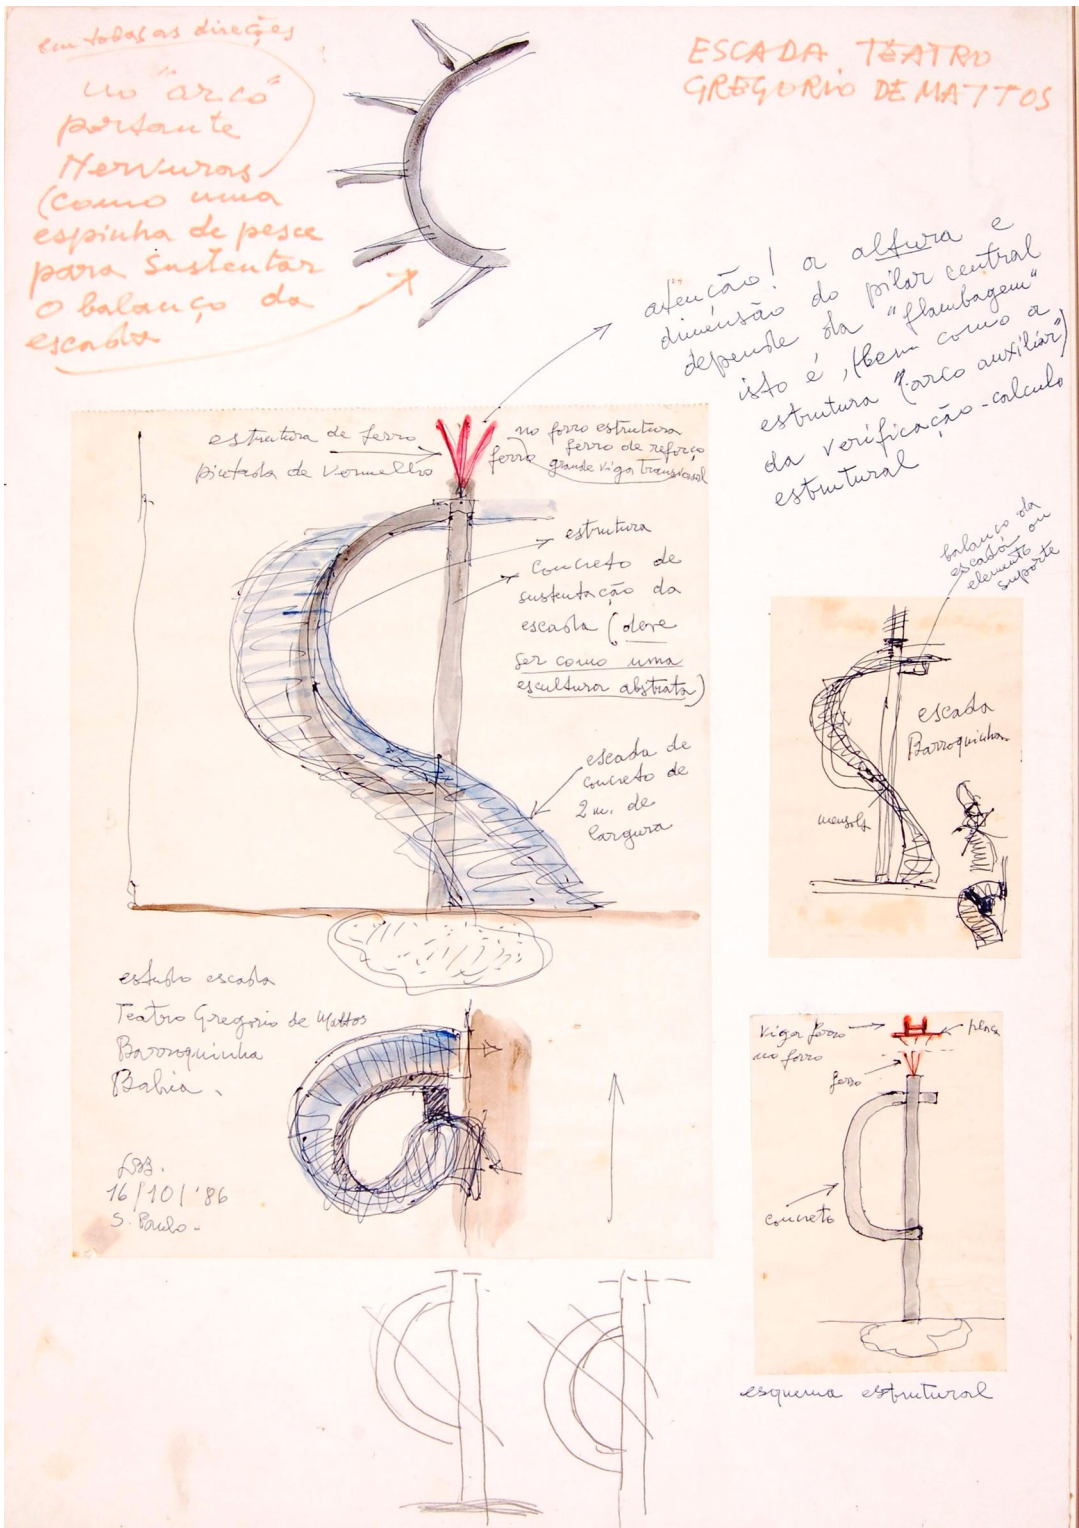 ESCADA TEATRO
GREGORIO DE MATTOS
em todas as direções
no "arco"
portante
Nervuras
(como uma
espinha de pesce
para sustentar
o balanço da
escada
atenção! a altura e
dimensão do pilar central
depende da "flambagem"
isto é, (bem como a
estrutura "arco auxiliar")
da verificação-calculo
estrutural
estrutura de ferro
pintada de vermelho
no forro estrutura
ferro de reforço
ferro grande viga transversal
estrutura
concreto de
sustentação da
escada (deve
ser como uma
escultura abstrata)
escada de
concreto de
2 m. de
largura
balanço da
escada ou
elemento
suporte
escada
Barroquinha
mensola
estudo escada
Teatro Gregorio de Mattos
Barroquinha
Bahia.
LBB.
16/10/'86
S. Paulo-
viga ferro
no forro
ferro
concreto
esquema estrutural